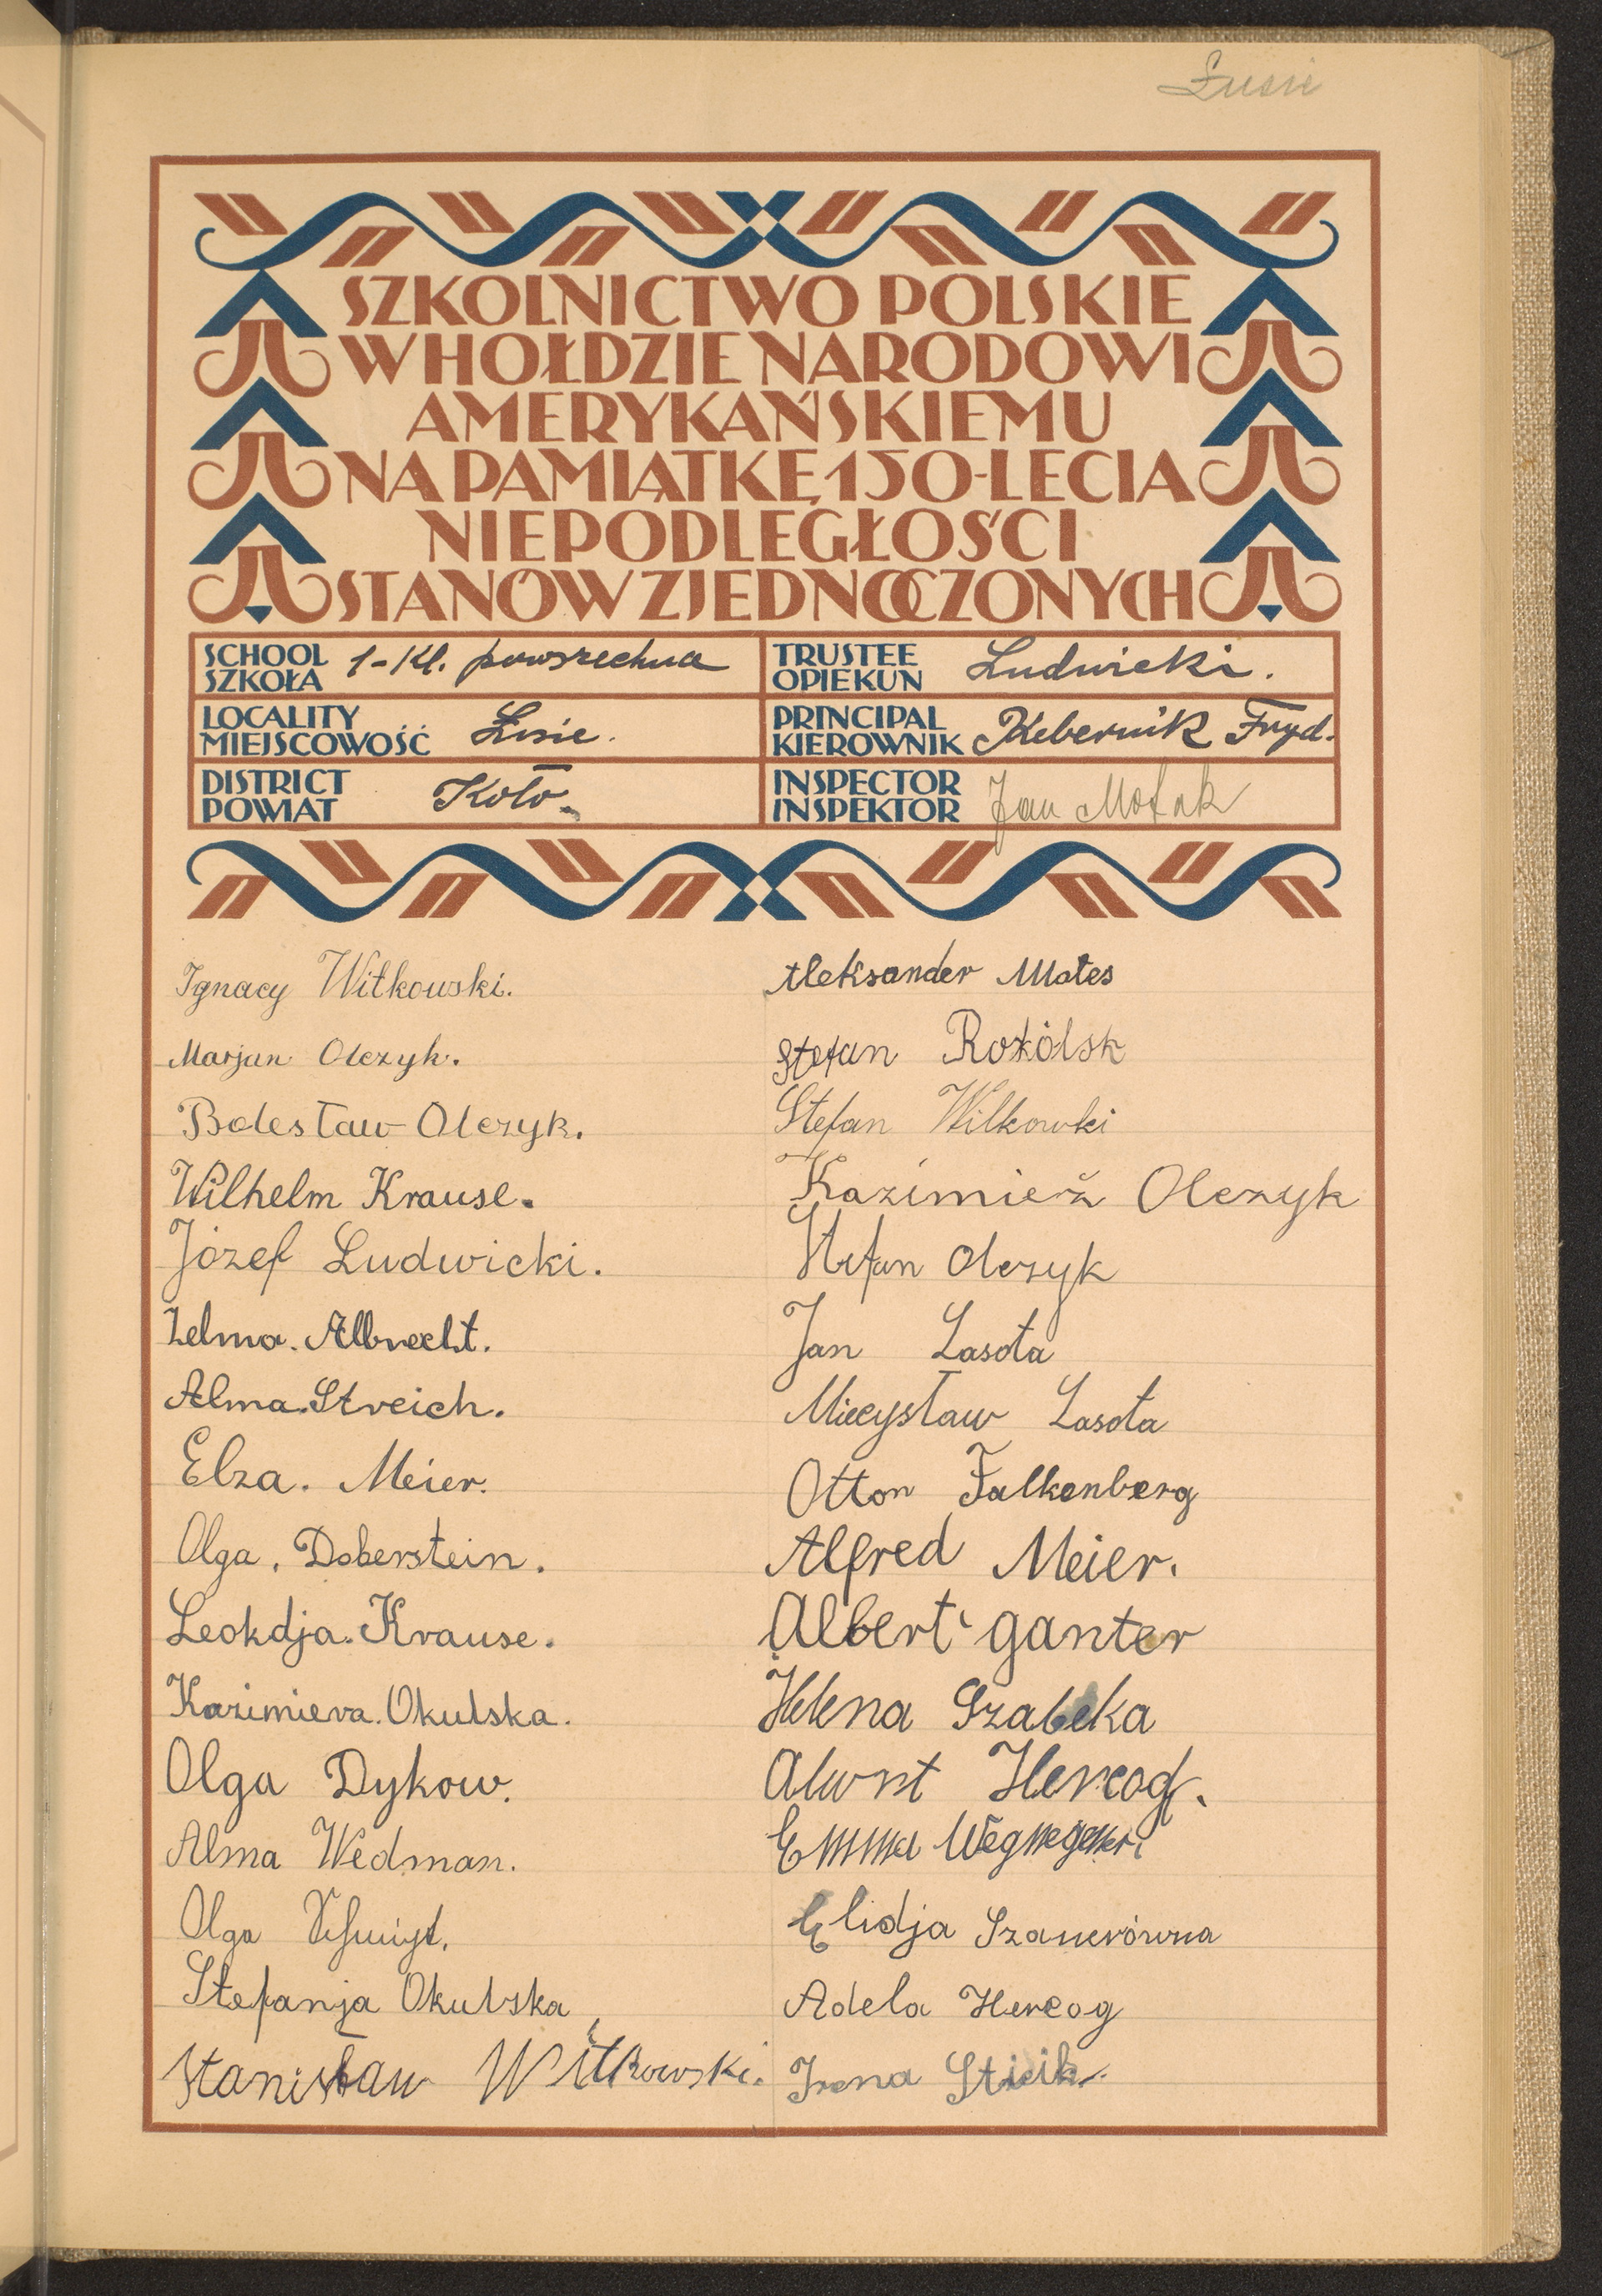 Łusie
SZKOLNICTWO POLSKIE
W HOŁDZIE NARODOWI
AMERYKAŃSKIEMU
NA PAMIĄTKĘ 150-LECIA
NIEPODLEGŁOŚCI
STANÓW ZJEDNOCZONYCH
SCHOOL
SZKOŁA
1-Kl. powszechna
TRUSTEE
OPIEKUN
Ludwicki.
LOCALITY
MIEJSCOWOŚĆ
Łusie.
PRINCIPAL
KIEROWNIK
Kebernik Fryd.
DISTRICT
POWIAT
Koło
INSPECTOR
INSPEKTOR
Jan
Ignacy Witkowski.
Marjan Olczyk.
Bolesław Olczyk.
Wilhelm Krause.
Józef Ludwicki.
Zelma. Albrecht.
Alma. Streich.
Elza. Meier.
Olga. Doberstein.
Leokdja. Krause.
Kazimiera. Okulska.
Olga Dykow.
Alma Wedman.
Olga
Stefanja Okulska
Stanisław Witkowski.
Aleksander Mates
Stefan
Stefan Wilkowki
Kazimierz Olczyk
Stefan Olczyk
Jan Lasota
Miecysław Lasota
Otton Falkenberg
Alfred Meier.
Albert ganter
Helena Szabeka
Hercog.
Emma
Elidja Szanerówna
Adela Hercog
Irena